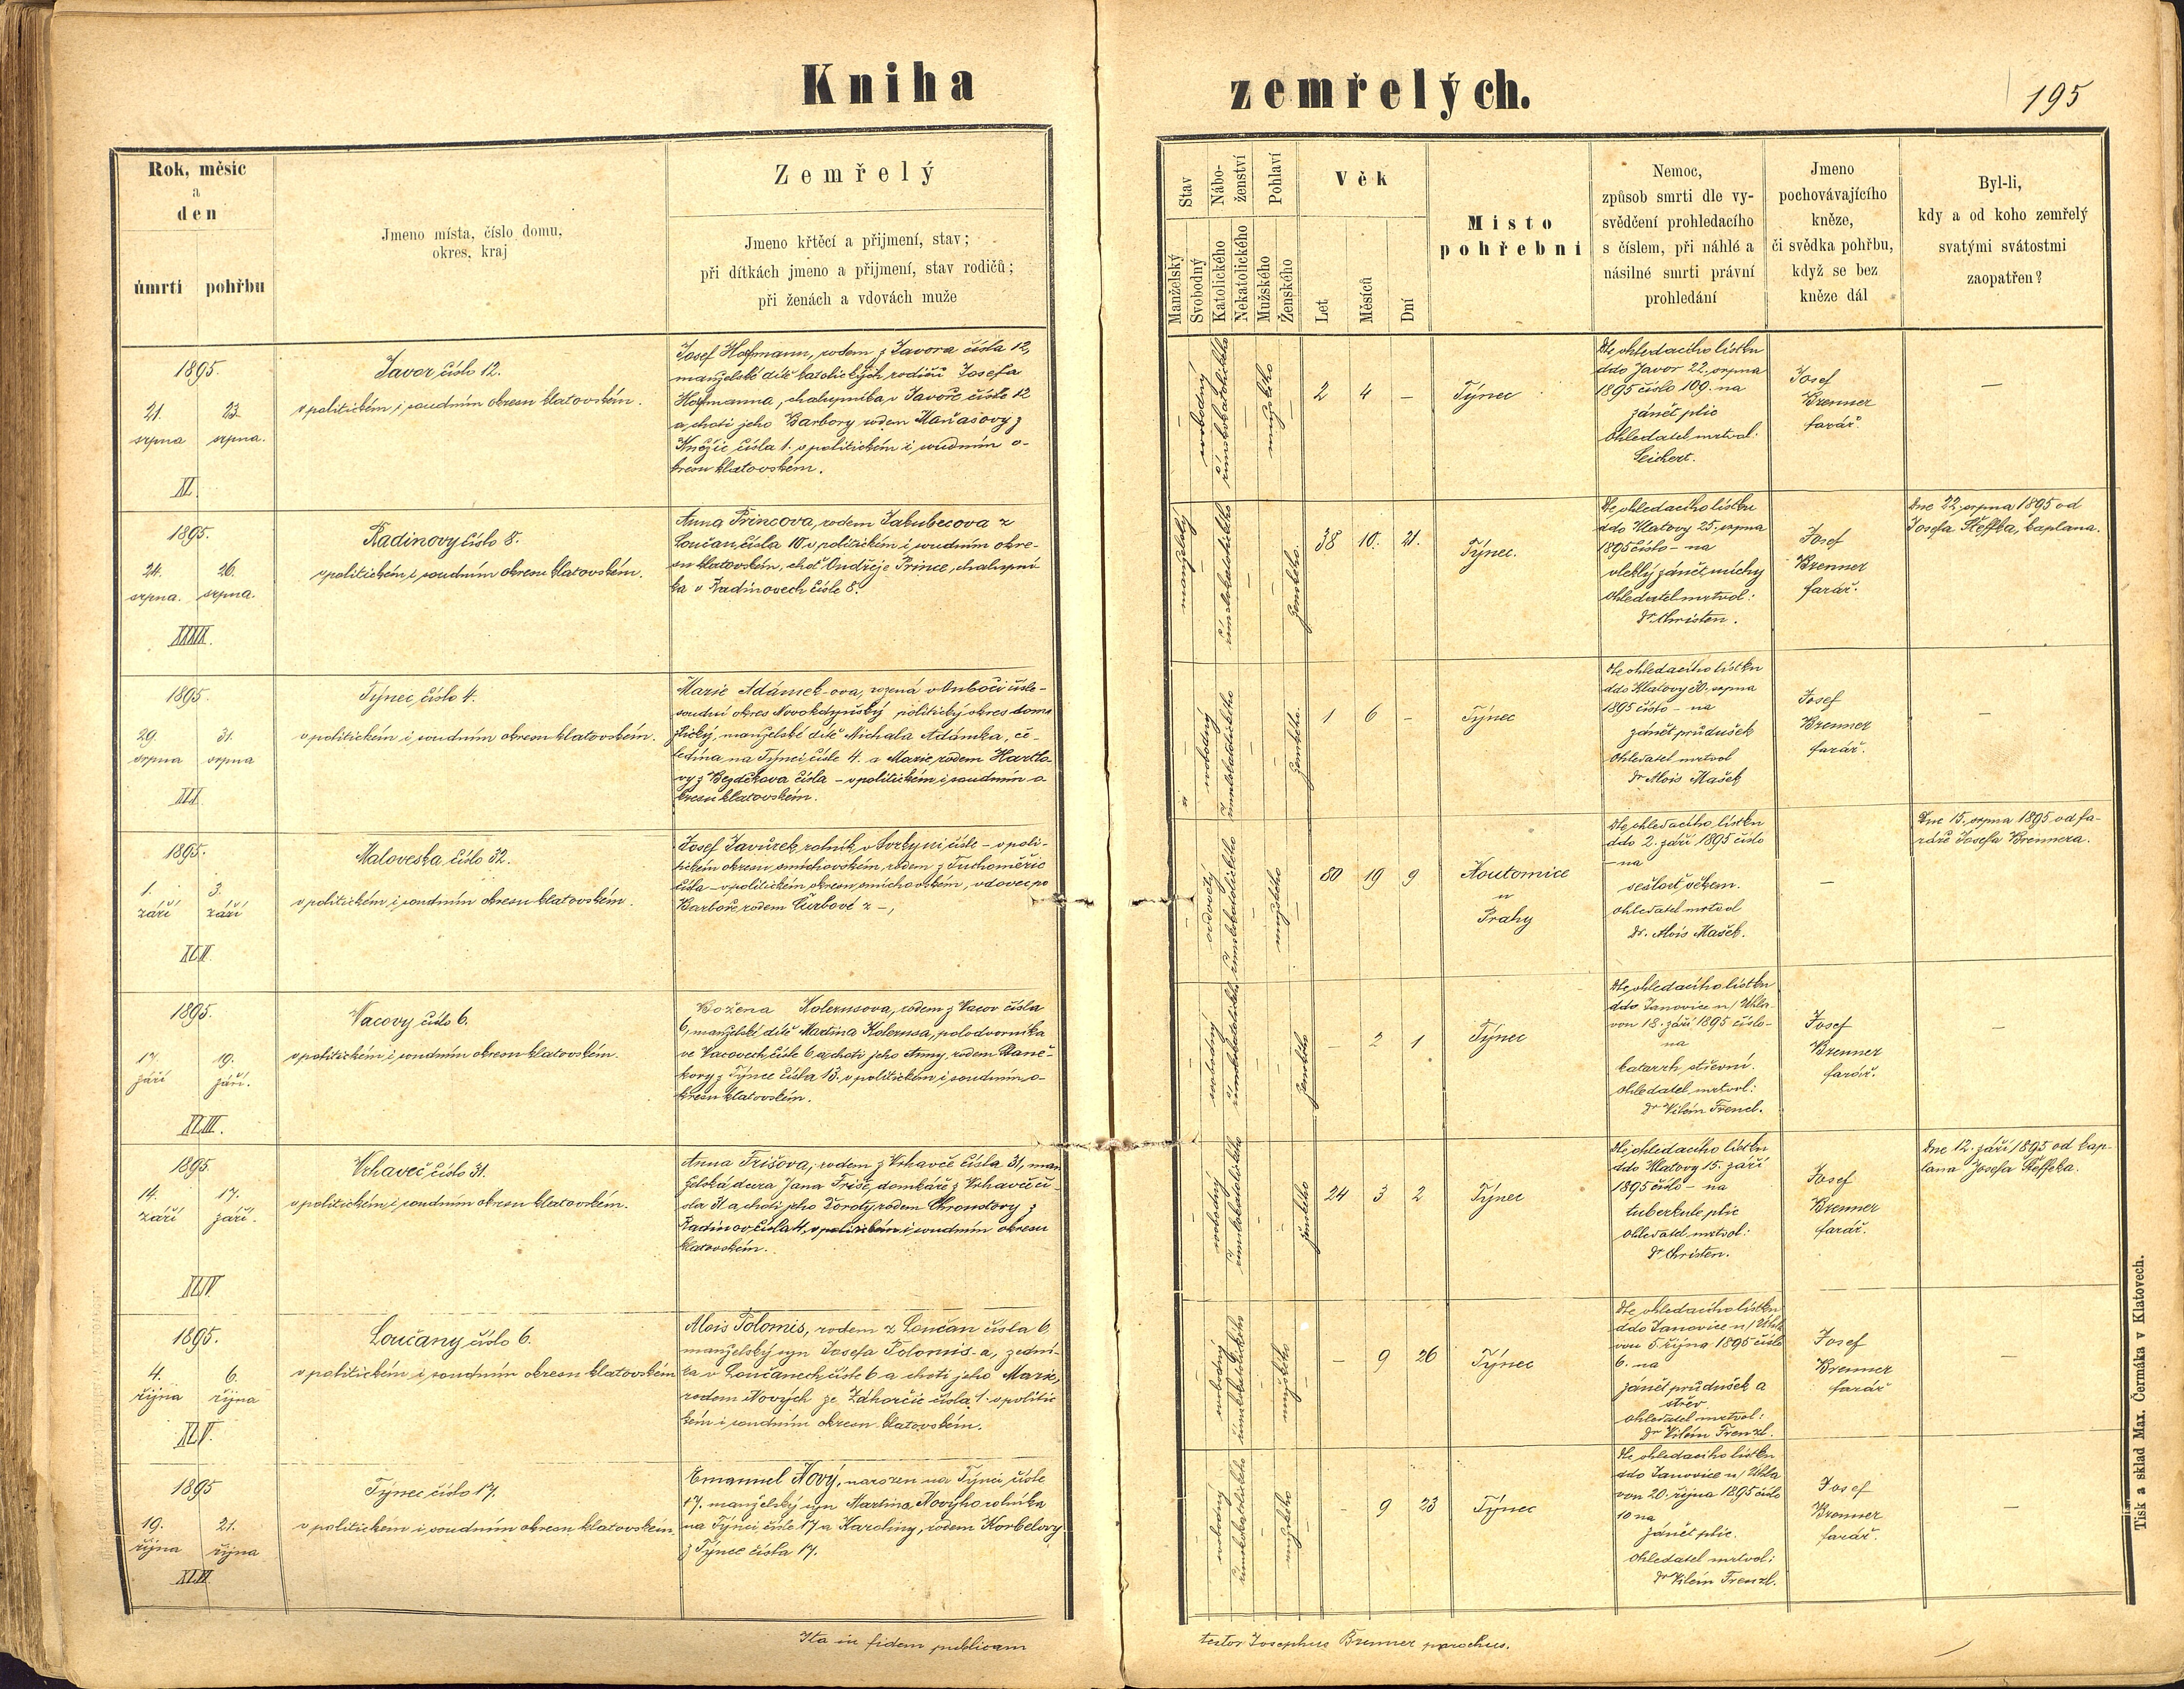 Kniha
zemřelých.
195
Rok, měsíc
a
den
úmrtí pohřbu
Jmeno místa, číslo domu,
okres, kraj
Zemřelý
Jmeno křtěcí a přijmení, stav;
při dítkách jmeno a přijmení, stav rodičů;
při ženách a vdovách muže
Stav
Manželský
Svobodný
Nábo-
ženství
Katolického
Nekatolického
Pohlaví
Mužského
Ženského
Věk
Let
Měsíců
Dní
Místo
pohřební
Nemoc,
způsob smrti dle vy-
svědčení prohledacího
s číslem, při náhlé a
násilné smrti právní
prohledání
Jmeno
pochovávajícího
kněze,
či svědka pohřbu,
když se bez
kněze dál
Byl-li,
kdy a od koho zemřelý
svatými svátostmi
zaopatřen?
1895.
21. 23
srpna srpna.
XL
Javor číslo 12.
v politickém i soudním okresu klatovském.
Josef Hofmann, rodem z Javora čísla 12,
manželské dítě katolických rodičů Josefa
Hofmanna, chalupníka v Javoře čísle 12
a choti jeho Barbory rodem Maňasovy z
Kněžic čísla 1. v politickém i soudním o-
kresu klatovském.
svobodný
římskokatolického
mužského
2 4 –
Týnec
Dle ohledacího lístku
ddo Javor 22. srpna
1895 číslo 109. na
zánět plic
Ohledatel mrtvol:
Seichert.
Josef
Brenner
farář.
–
1895.
24. 26.
srpna. srpna.
XXXXI.
Radinovy číslo 8.
v politickém i soudním okresu klatovském.
Anna Princova, rodem Jakubcova z
Loučan, čísla 10. v politickém i soudním okre-
su klatovském, choť Ondřeje Prince, chalupní
ka v Radinovech čísle 8.
manželský
římskokatolického
ženského.
38 10. 21.
Týnec.
Dle ohledacího lístku
ddo Klatovy 25. srpna
1895 číslo – na
vleklý zánět míchy
Ohledatel mrtvol:
Dr. Christen.
Josef
Brenner
farář.
Dne 22. srpna 1895 od
Josefa Steffka, kaplana.
1895.
29. 31.
srpna srpna
XLI.
Týnec, číslo 4.
v politickém i soudním okresu klatovském.
Marie Adámek-ova, rozená v Luboči čísle –
soudní okres Novokdyňský politický okres doma
žlický, manželské dítě Michala Adámka, če-
ledína na Týnci čísle 4. a Marie, rodem Hartlo
vy z Bezděkova čísla – v politickém i soudním o
kresu klatovském.
svobodný
římskokatolického
ženského.
1 6 –
Týnec
Dle ohledacího lístku
ddo Klatovy 30. srpna
1895 číslo – na
zánět průdušek
Ohledatel mrtvol
Dr Alois Mašek
Josef
Brenner
farář.
–
1895.
1. 3.
září září
XLII.
Maloveska, číslo 32.
v politickém i soudním okresu klatovském.
Josef Javůrek, rolník v Svrkyni čísle – v poli-
tickém okresu smíchovském, rodem z Tuchoměřic
čísla – v politickém okresu smíchovském, vdovec po
Barboře, rodem Čurbové z –,
ovdovělý
římskokatolického
mužského
80 19 9
Noutonice
u
Prahy
Dle ohledacího lístku
ddo 2. září 1895 číslo
– na
sešlost věkem.
Ohledatel mrtvol
Dr. Alois Mašek.
–
Dne 15. srpna 1895 od fa-
ráře Josefa Brennera.
1895.
17. 19.
září září.
XLIII.
Vacovy číslo 6.
v politickém i soudním okresu klatovském.
Božena Kolerusova, rodem z Vacov čísla
6, manželské dítě Martina Kolerusa, polodvorníka
ve Vacovech čísle 6 a choti jeho Anny, rodem Staně-
kovy z Týnce čísla 13. v politickém i soudním o-
kresu klatovském.
svobodný
římskokatolického
ženského
– 2 1
Týnec
Dle ohledacího lístku
ddo Janovice n/Uhla-
vou 18. září 1895 číslo –
na
katarrh střevní.
Ohledatel mrtvol:
Dr Vilém Frencl.
Josef
Brenner
farář.
–
1895.
14. 17.
září září.
XLIV.
Vrhaveč číslo 31.
v politickém i soudním okresu klatovském.
Anna Frišova, rodem z Vrhavče čísla 31, man
želská dcera Jana Friše, domkáře z Vrhavče čí
sla 31 a choti jeho Doroty rodem Chroustovy z
Radinov, čísla 4, v politickém i soudním okresu
klatovském.
svobodný
římskokatolického
ženského
24 3 2
Týnec
Dle ohledacího lístku
ddo Klatovy 15. září
1895 číslo – na
tuberkule plic
Ohledatel mrtvol:
Dr Christen.
Josef
Brenner
farář.
Dne 12. září 1895 od kap-
lana Josefa Steffka.
1895.
4. 6.
října října
XLV.
Loučany číslo 6.
v politickém i soudním okresu klatovském
Alois Polomis, rodem z Loučan čísla 6.
manželský syn Josefa Polomis-a, zední-
ka v Loučanech, čísle 6 a choti jeho Marie,
rodem Nových ze Záhorčic čísla 1. v politic
kém i soudním okresu klatovském.
svobodný
římskokatolického
mužského
– 9 26
Týnec
Dle ohledacího lístku
ddo Janovice n/Uhla
vou 5. října 1895 číslo
6. na
zánět průdušek a
střev
Ohledatel mrtvol:
Dr Vilém Frenzl.
Josef
Brenner
farář
–
1895
19. 21.
října října
XLVI.
Týnec číslo 17.
v politickém i soudním okresu klatovském.
Emanuel Nový, narozen na Týnci čísle
17. manželský syn Martina Nového rolníka
na Týnci čísle 17 a Karoliny, rodem Korbelovy
z Týnce čísla 17.
svobodný
římskokatolického
mužského
– 9 23
Týnec
Dle ohledacího lístku
ddo Janovice n/Uhla
vou 20. října 1895 číslo
10 na
zánět plic.
Ohledatel mrtvol:
Dr Vilém Frenzl.
Josef
Brenner
farář.
–
Ita in fidem publicam
testor Josephus Brenner parochus.
Tisk a sklad Max. Čermáka v Klatovech.